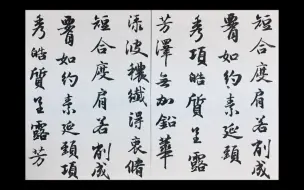 短合度肩若削成
腰如約素延頸
秀項皓質呈露
芳澤無加鉛華
淥波穠纖得衷脩
短合度肩若削成
腰如約素延頸項
秀皓質呈露芳